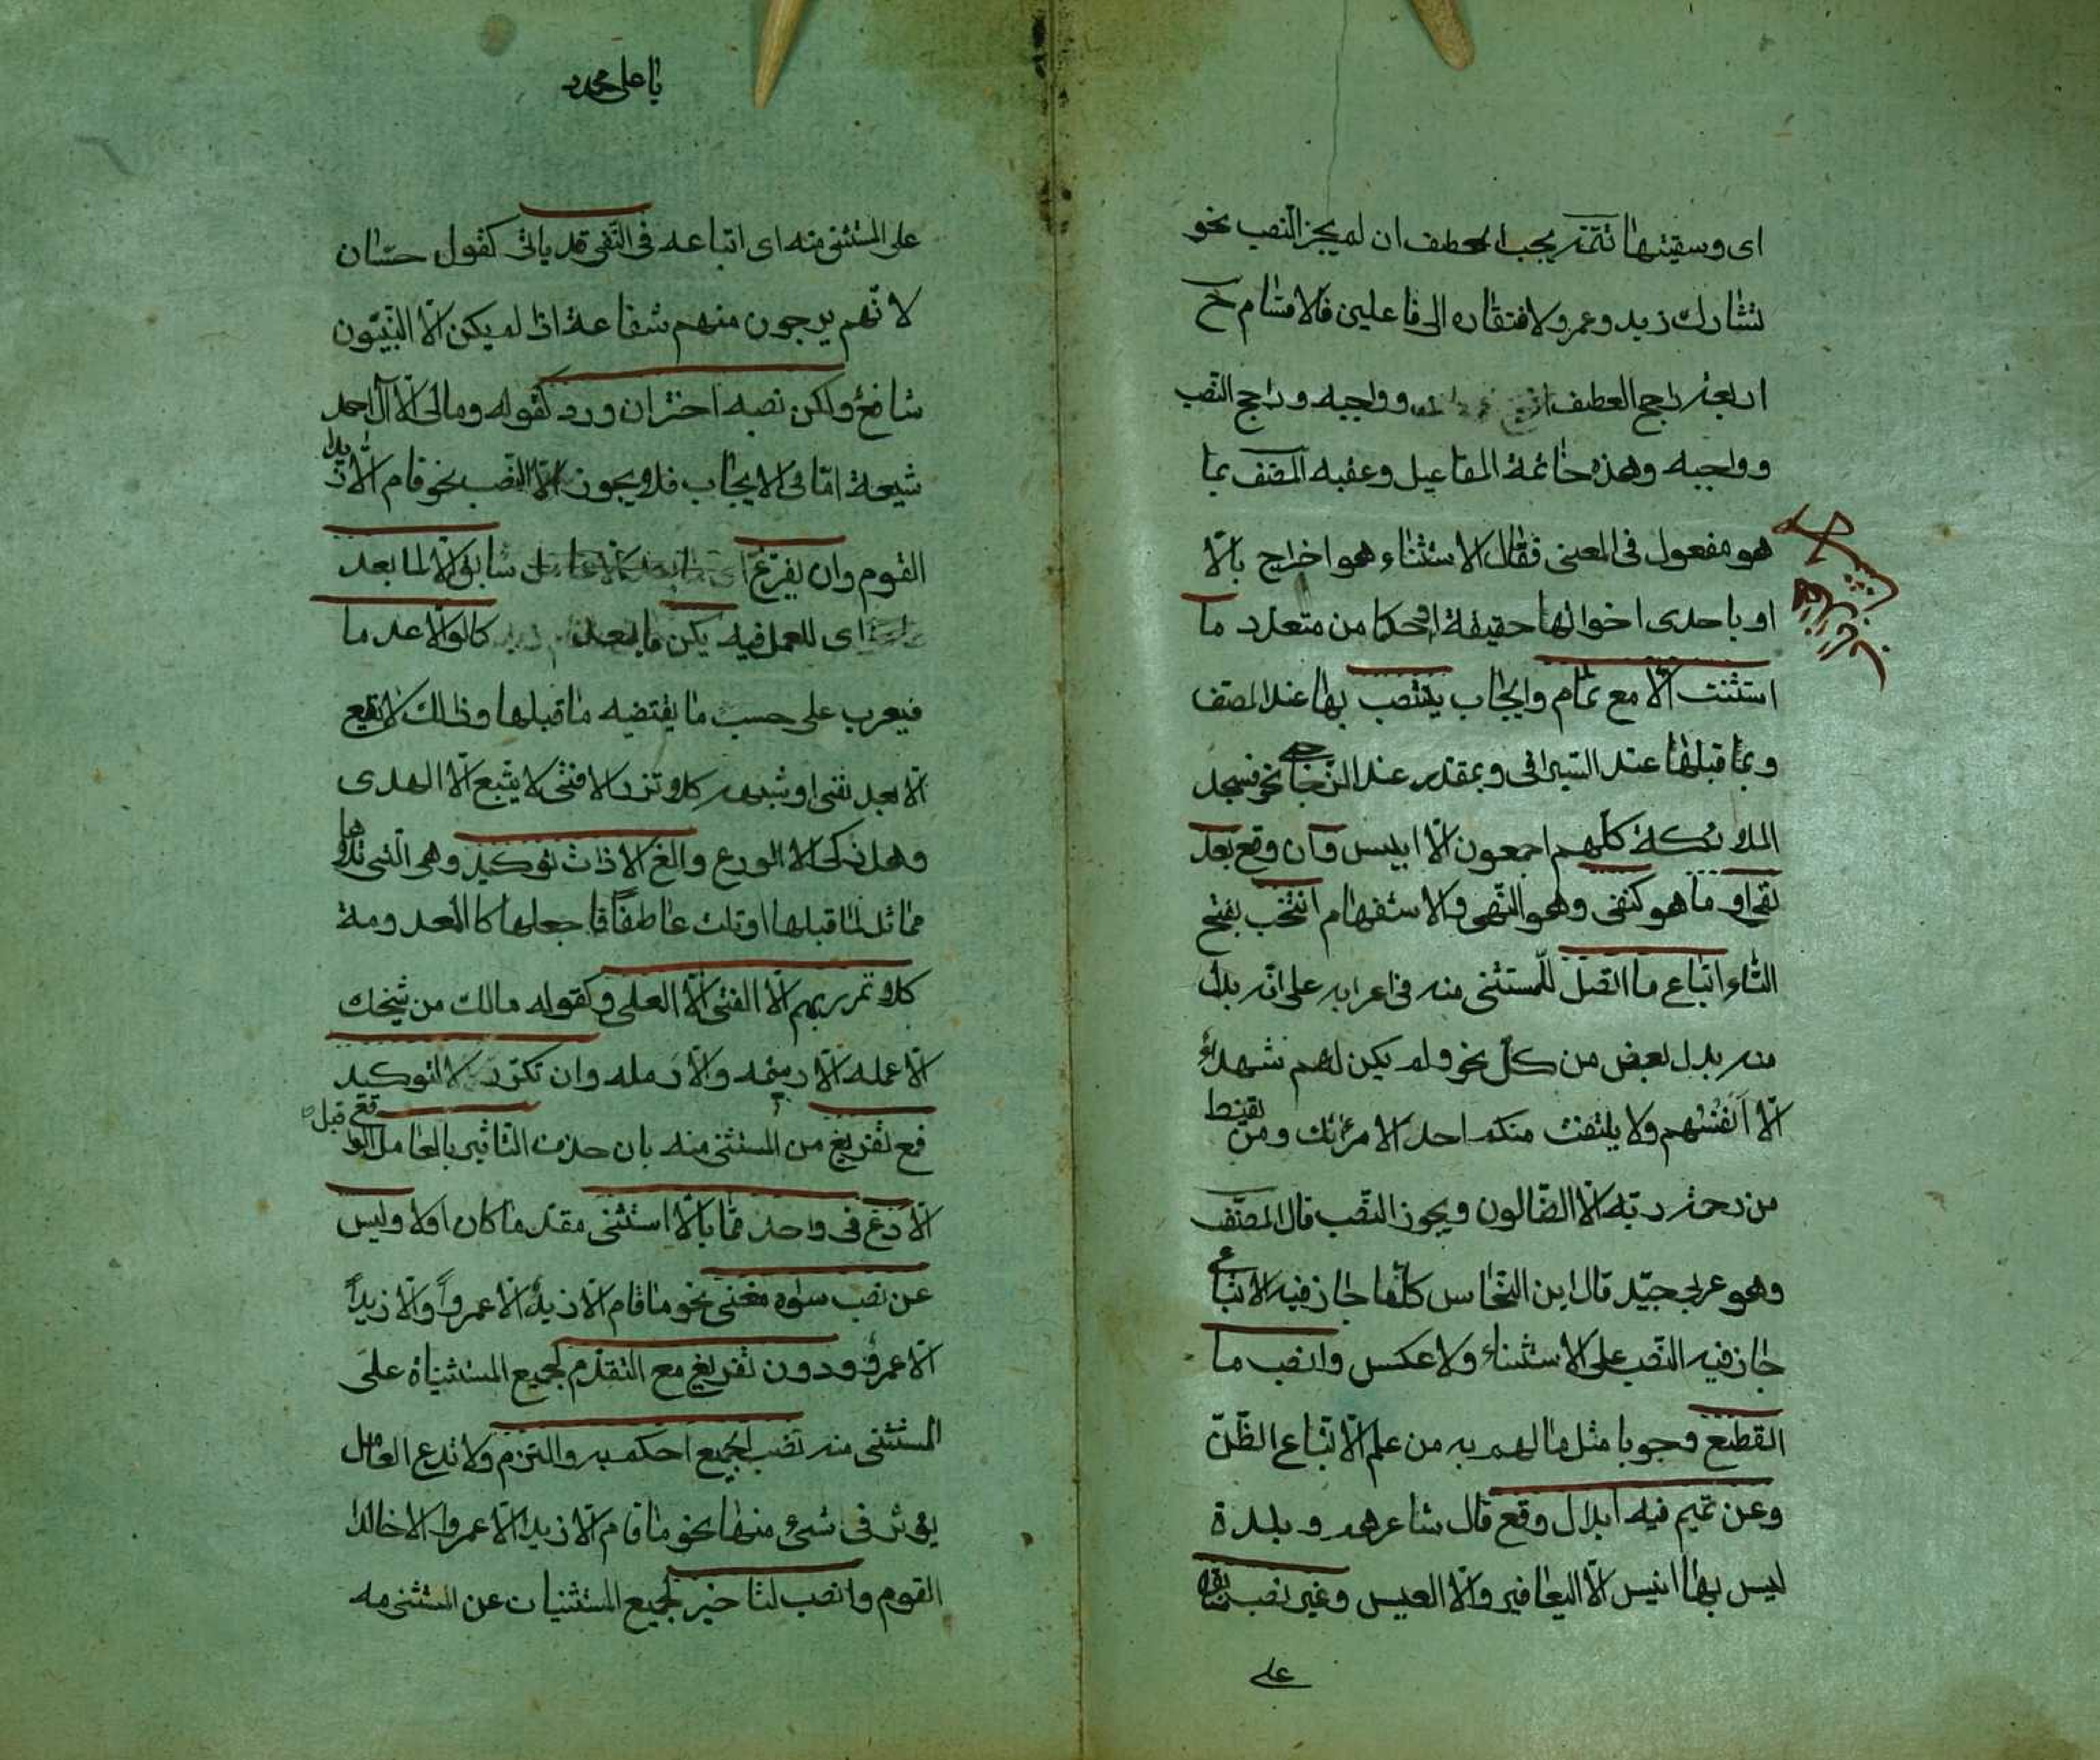 اى وسقيتها تتمة يجب العطف ان لم يجز النصب نحو
تشارك زيد وعمرو لافتقاره الى فاعلين فالاقسام ح
اربعة راجح العطف وواجبه وراجح النصب
وواجبه وهذه خاتمة المفاعيل وعقبه المصنف بما
هو مفعول فى المعنى فقال الاستثناء هو اخراج بالّا
او باحدى اخواتها حقيقة او حكما من متعدد ما
استثنت الّا مع تمام وايجاب ينتصب بها عند المصنف
وبما قبلها عند السيرافى وبمقدر عند الزجاج نحو فسجد
الملائكة كلهم اجمعون الّا ابليس وان وقع بعد
نفى او ما هو كنفى وهو النهى والاستفهام انتخب بفتح
التاء اتباع ما اتصل للمستثنى منه فى اعرابه على انه بدل
منه بدل بعض من كل نحو ولم يكن لهم شهداء
الّا انفسهم ولا يلتفت منكم احد الا مرأتك ومن يقنط
من رحمة ربه الّا الضالون ويجوز النصب قال المصنف
وهو عربى جيّد قال ابن النحاس كلما جاز فيه الاتباع
جاز فيه النصب على الاستثناء ولا عكس وانصب ما
انقطع وجوبا مثل ما لهم به من علم الّا اتباع الظنّ
وعن تميم فيه ابدال وقع قال شاعرهم وبلدة
ليس بها انيس الّا اليعافير والّا العيس وغير نصب سابق
على
يا على مدد
على المستثنى منه اى اتباعه فى النفى قد ياتى كقول حسّان
لانّهم يرجون منهم شفاعة اذا لم يكن الّا النبيّون
شافع ولكن نصبه اختر ان ورد كقوله ومالى الّا آل احمد
شيعة امّا فى الايجاب فلا يجوز الّا النصب نحو قام الّا زيدا
القوم وان يفرغ سابق الّا لما بعد
اى للعمل فيه يكن ما بعد كما لو الّا عدما
فيعرب على حسب ما يقتضيه ما قبلها وذلك لا يقع
الّا بعد نفى او شبهه كلا تزر الا فتى لا يتبع الّا الهدى
وهل زكى الا الورع والغ الا ذات توكيد وهى التى تلاها
مماثل لما قبلها او تلت عاطفاً فاجعلها كالمعدومة
كلا تمرر بهم الّا الفتى الّا العلى وكقوله مالك من شيخك
الّا عمله الّا رسيمه والّا رمله وان تكرر لا لتوكيد
فمع تفريغ من المستثنى منه بان حذف التاثير بالعامل الواقع قبل
الّا دع فى واحد مما بالّا استثنى مقدما كان اولا وليس
عن نصب سواه مغنى نحو ما قام الّا زيد الّا عمرواً والّا زيداً
الّا عمرو ودون تفريغ مع التقدم لجميع المستثناة على
المستثنى منه نصب الجميع احكم به والتزم ولا تدع العامل
يؤثر فى شىء منها نحو ما قام الّا زيدا الّا عمروا الا خالدا
القوم وانصب لتاخير لجميع المستثنيات عن المستثنى منه